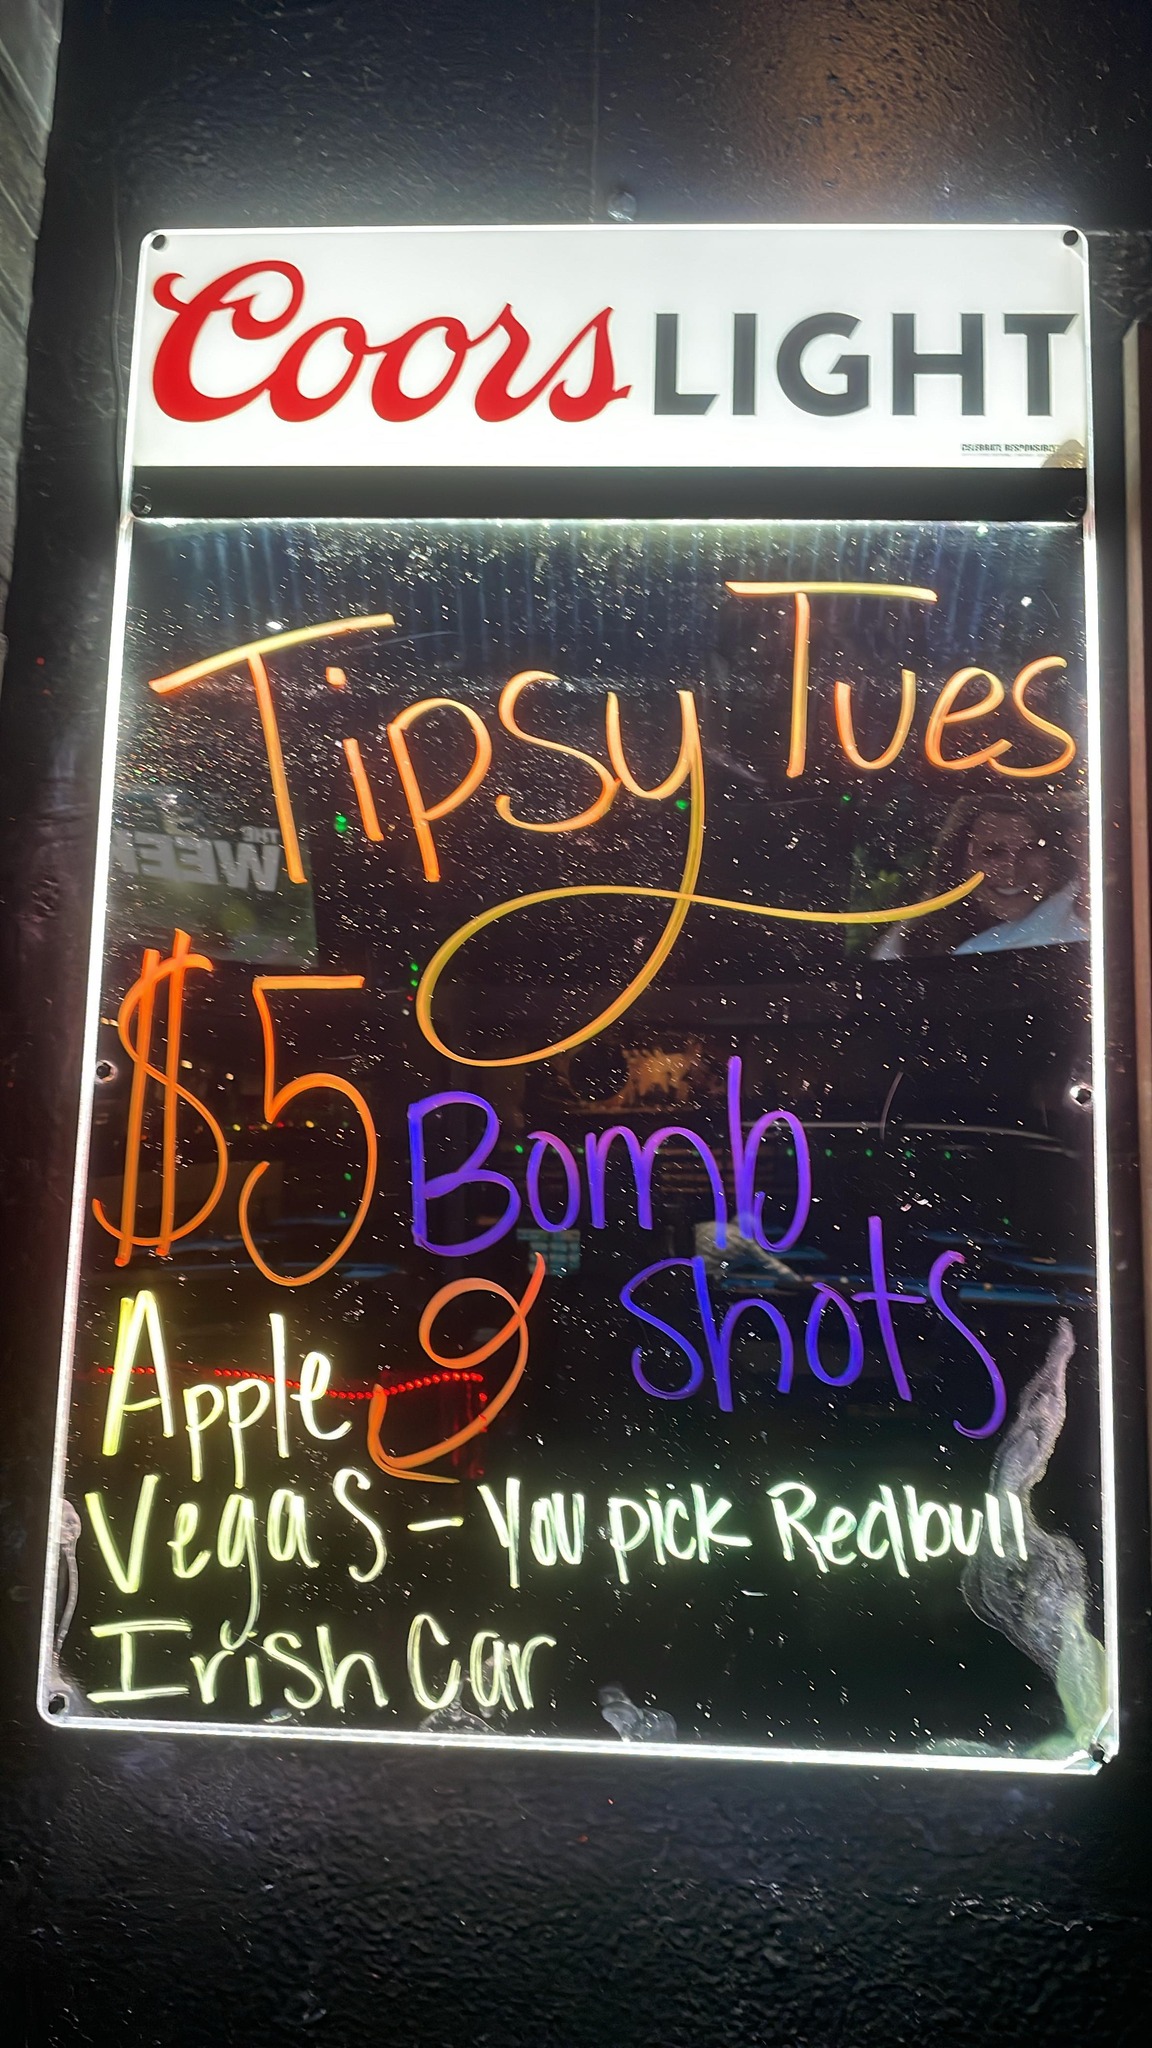 Coors LIGHT
CELEBRATE RESPONSIBLY
Tipsy Tues
$5 Bomb
shots
Apple
Vegas - You pick Redbull
Irish Car
THE
WEEK